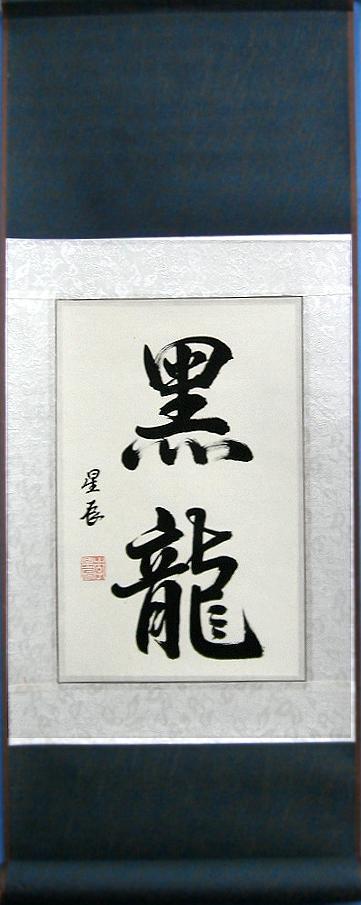 黑龍
星辰